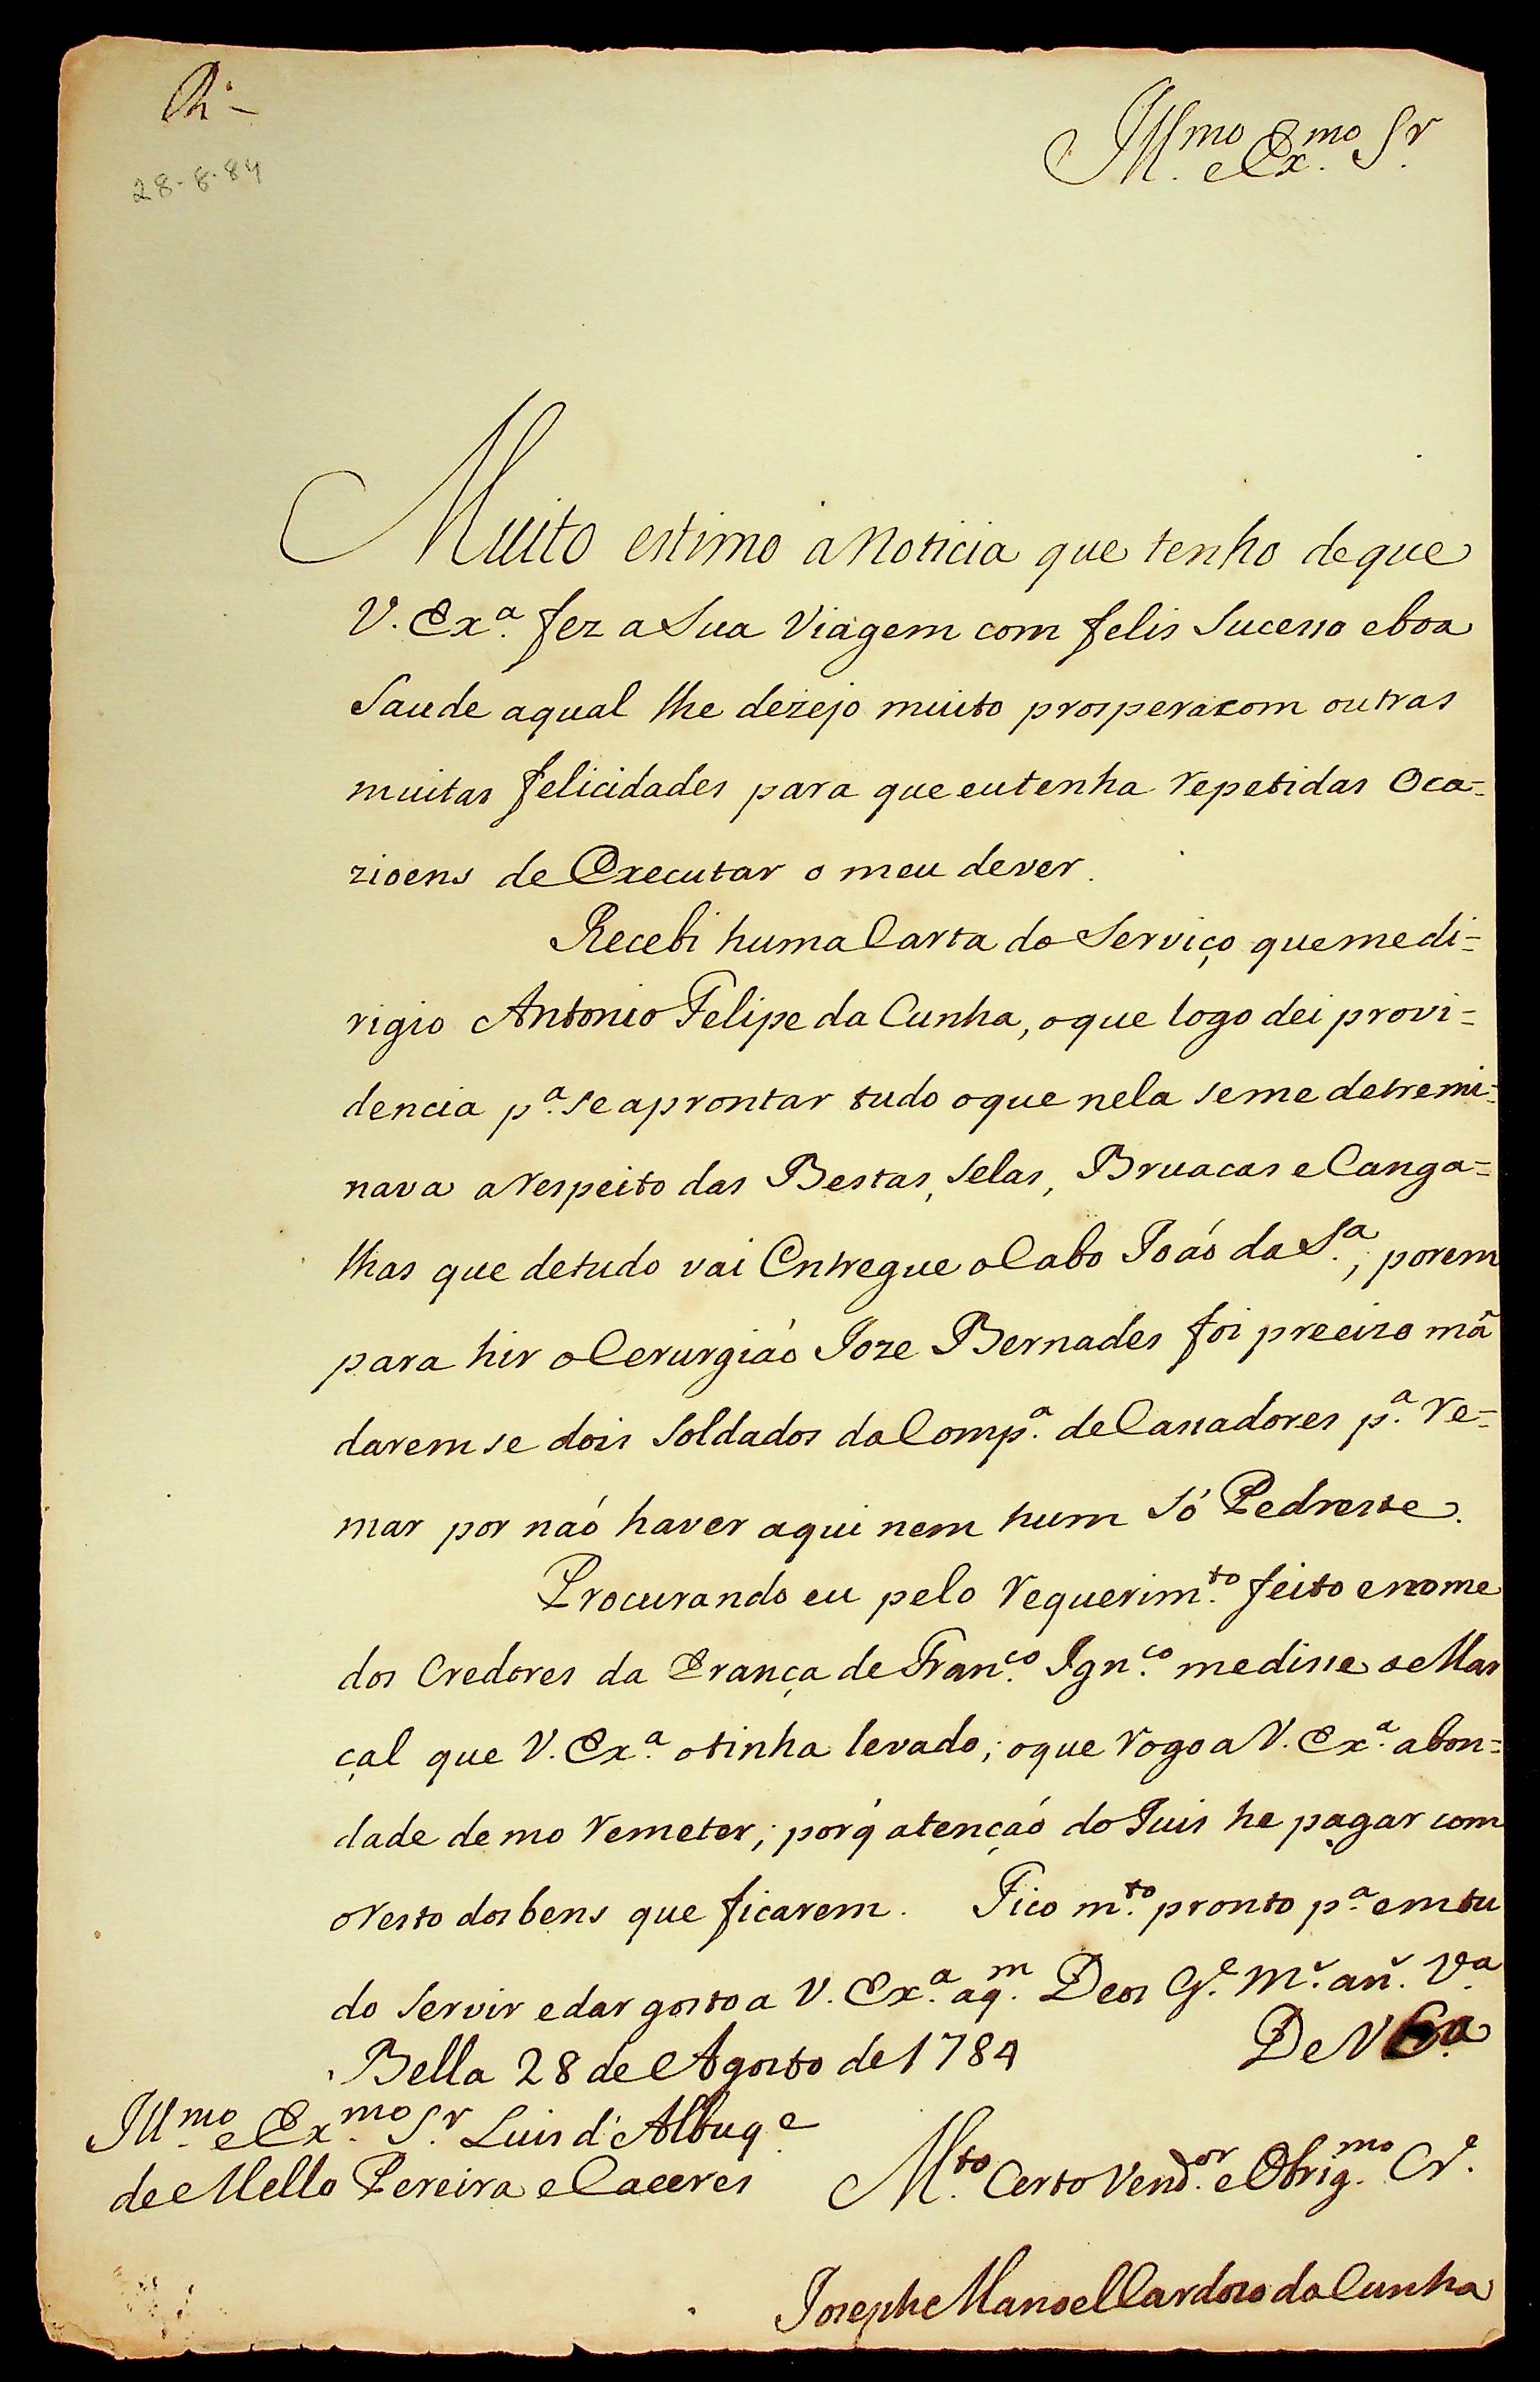 Ra.
28-8-84
Illmo. e Exmo. Sr.
Muito estimo a Noticia que tenho de que
V. Exa. fez a Sua Viagem com felis Sucesso e boa
Saude a qual lhe dezejo muito prospera com outras
muitas felicidades para que eu tenha repetidas Oca=
zioens de Executar o meu dever.
Recebi huma Carta do Serviço que me di=
rigio Antonio Felipe da Cunha, o que logo dei provi=
dencia pa. se aprontar tudo o que nela se me detremi=
nava a respeito das Bestas, Selas, Bruacas e Canga=
lhas que de tudo vai Entregue o Cabo Joaó da Sa., porem
para hir o Cerurgiaó Joze Bernades foi precizo mã
darem se dois Soldados da Compa. de Cassadores pa. re=
mar por naó haver aqui nem hum Só Pedreste.
Procurando eu pelo requerimto. feito e nome
dos Credores da Erança de Franco. Ignco. me disse o Mar
çal que V. Exa. o tinha levado; o que rogo a V. Exa. a bon=
dade de mo remeter; porq̃ atençaó do Juis he pagar com
o resto dos bens que ficarem. Fico mto. pronto pa. em tu
do Servir e dar gosto a V. Exa. a qm. Deos Ge. ms. ans. Va.
Bella 28 de Agosto de 1784
De V Exa.
Illmo. e Exmo. Sr. Luis d'Albuqe.
de Mello Pereira e Caceres
Mto. Certo Vendor. e Obrigmo. Cre.
Joseph Manoel Cardozo da Cunha